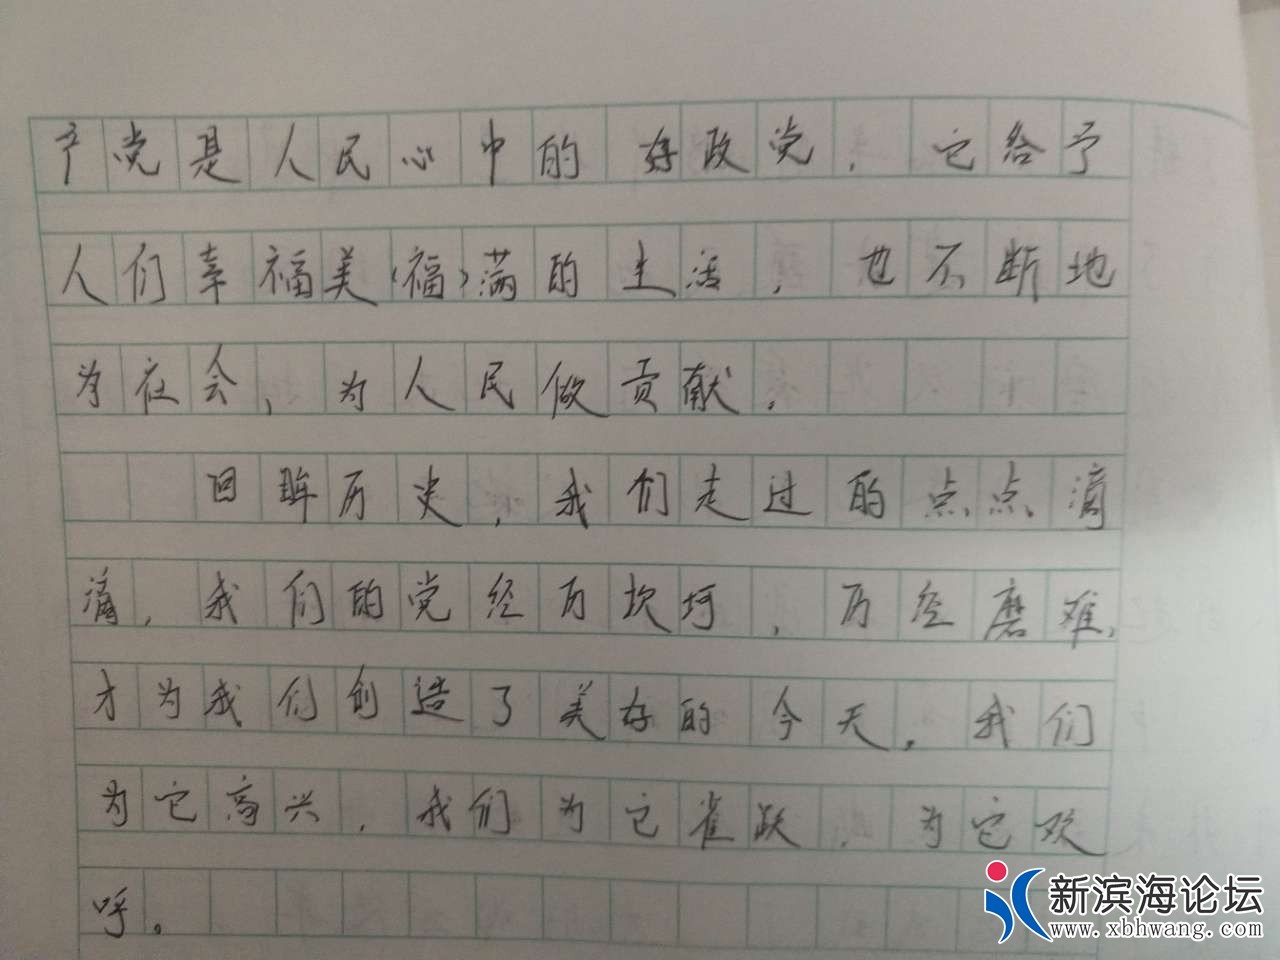 产党是人民心中的好政党，它给予
人们幸福美（福）满的生活，也不断地
为社会，为人民做贡献。
回眸历史，我们走过的点点滴
滴，我们的党经历坎坷，历经磨难，
才为我们创造了美好的今天。我们
为它高兴，我们为它雀跃，为它欢
呼。
新滨海论坛
www.xbhwang.com